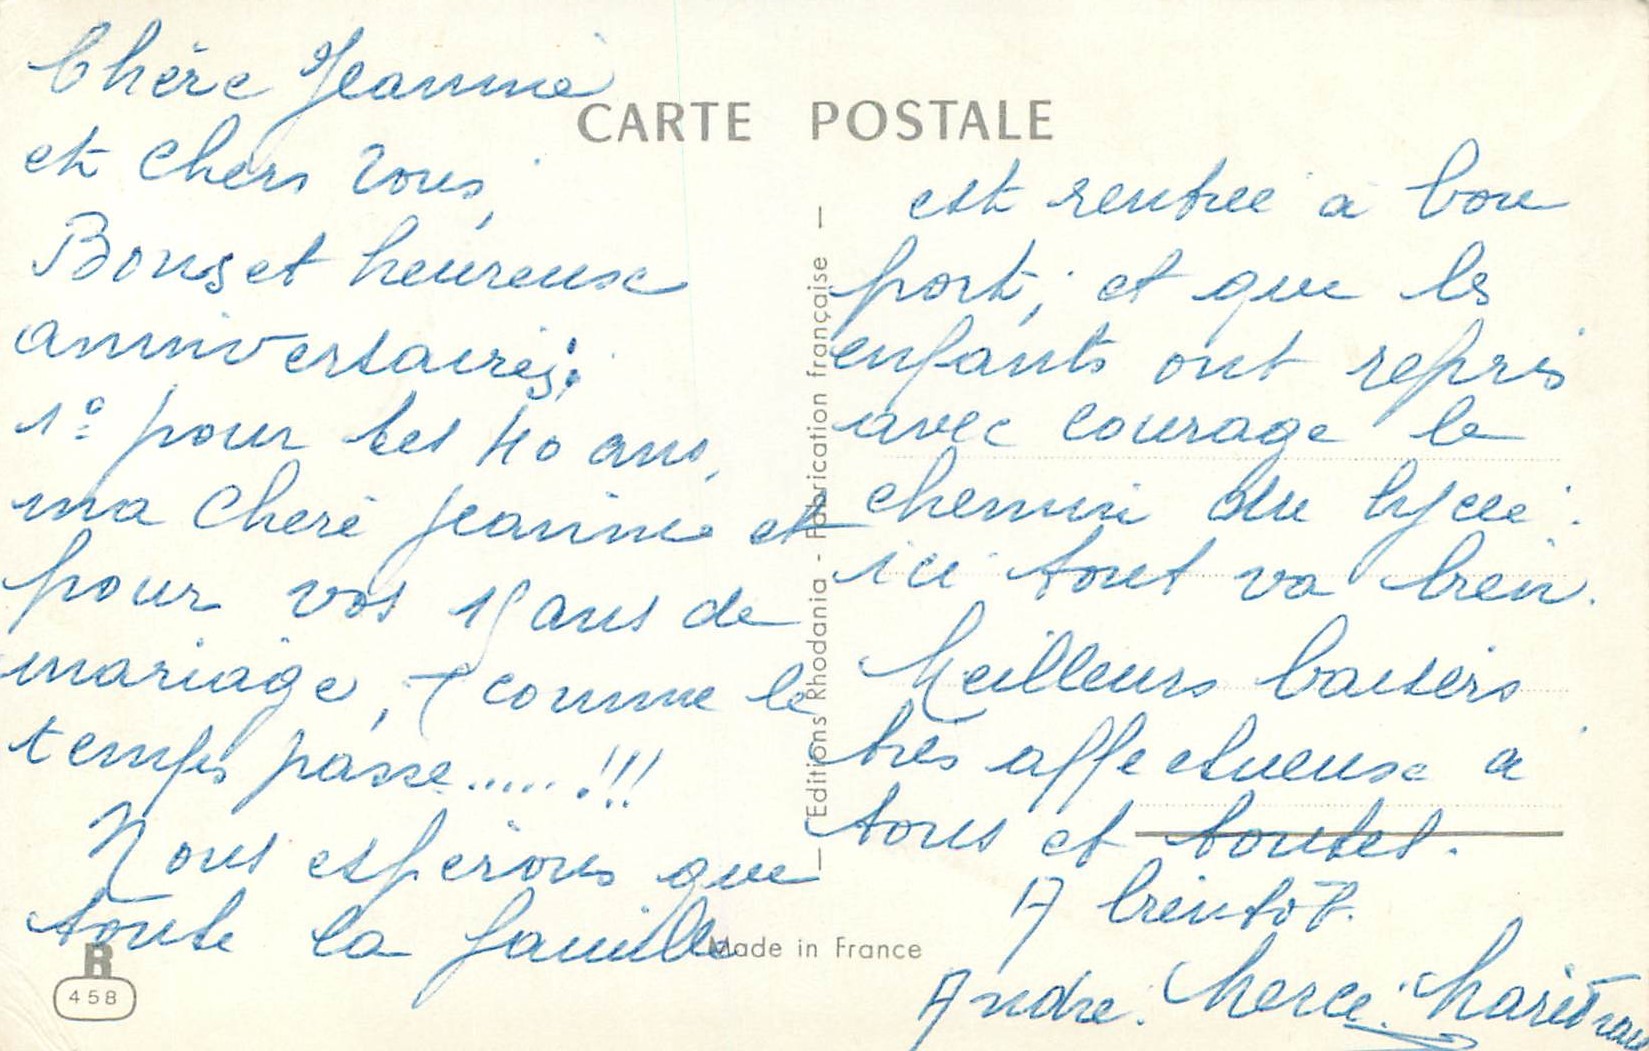 Chère Jeannine
et chers Vous,
Bons et heureux
anniversaires:
1º pour tes 40 ans,
ma chère Jeannine et
pour vos 15 ans de
mariage, comme le
temps passe..... !!!
Nous espérons que
toute la famille
CARTE POSTALE
est rentrée à bon
port, et que les
enfants ont repris
avec courage le
chemin du lycée.
ici tout va bien.
Meilleurs baisers
très affectueux à
tous et toutes.
A bientôt.
André.
Editions Rhodania - Fabrication française
Made in France
R
458